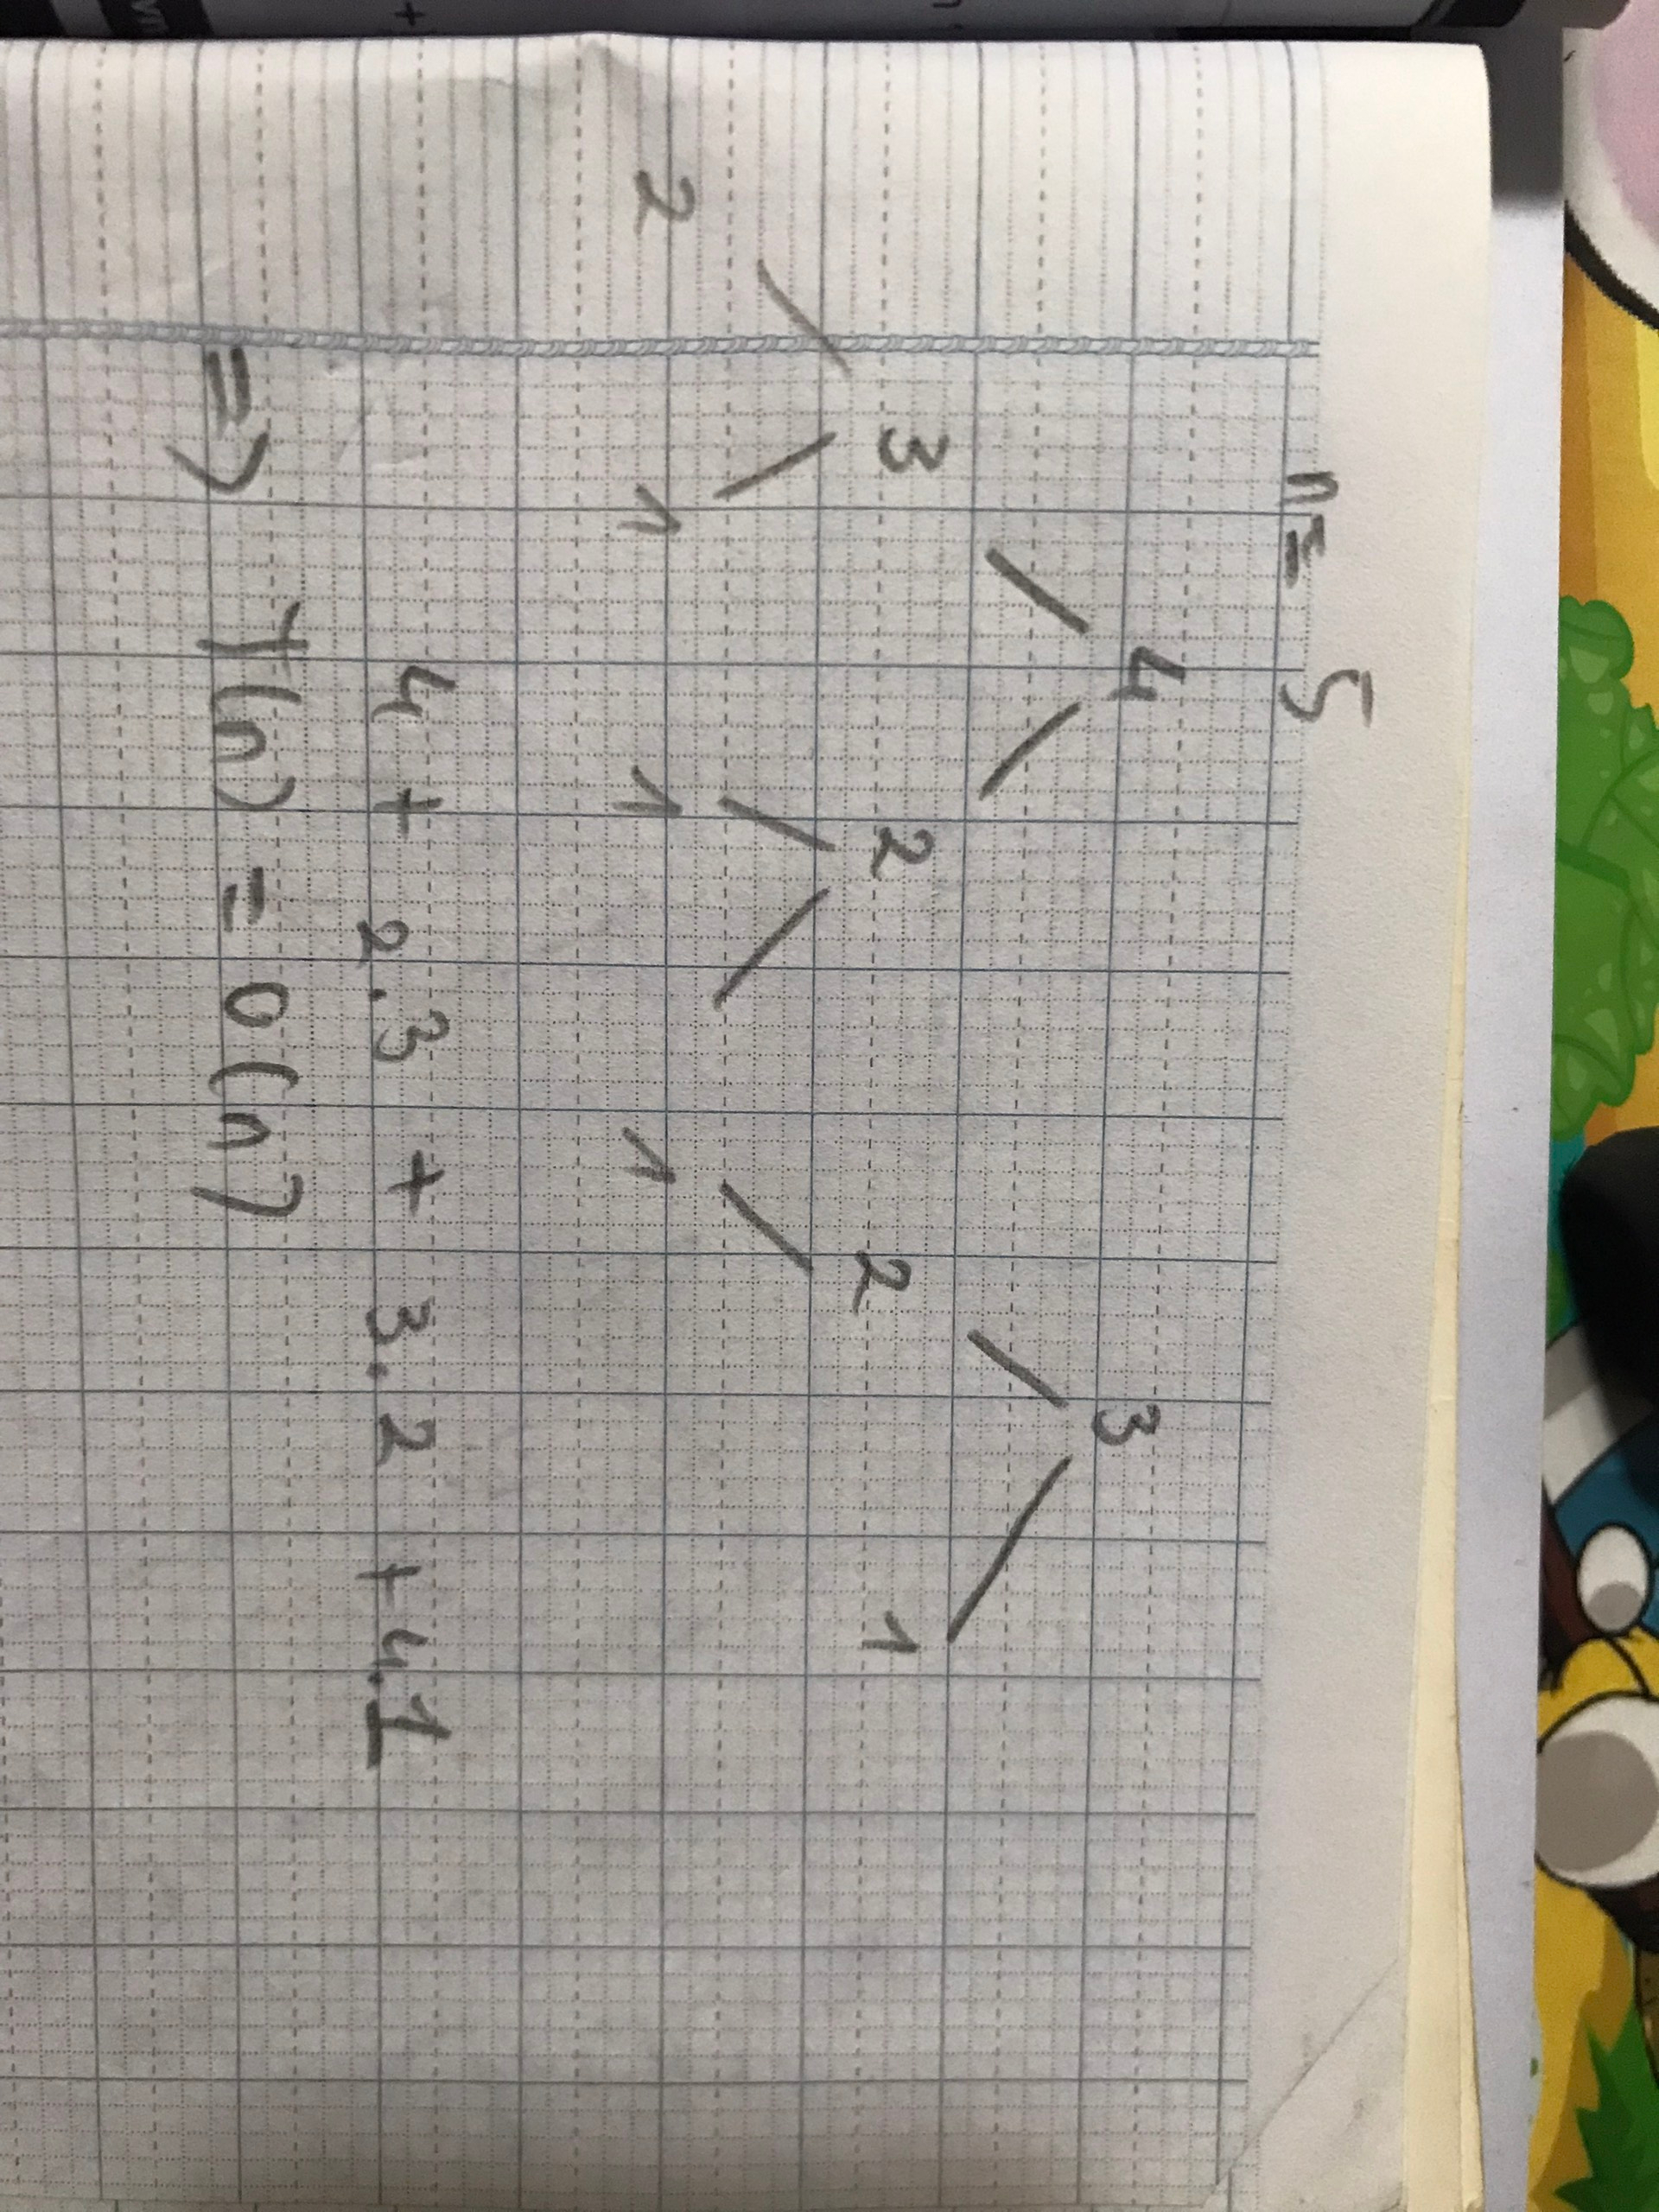 n = 5
4 3
3 2 2 1
2 1 1 1
4 + 2.3 + 3.2 + 4.1
=> T(n) = O(n)